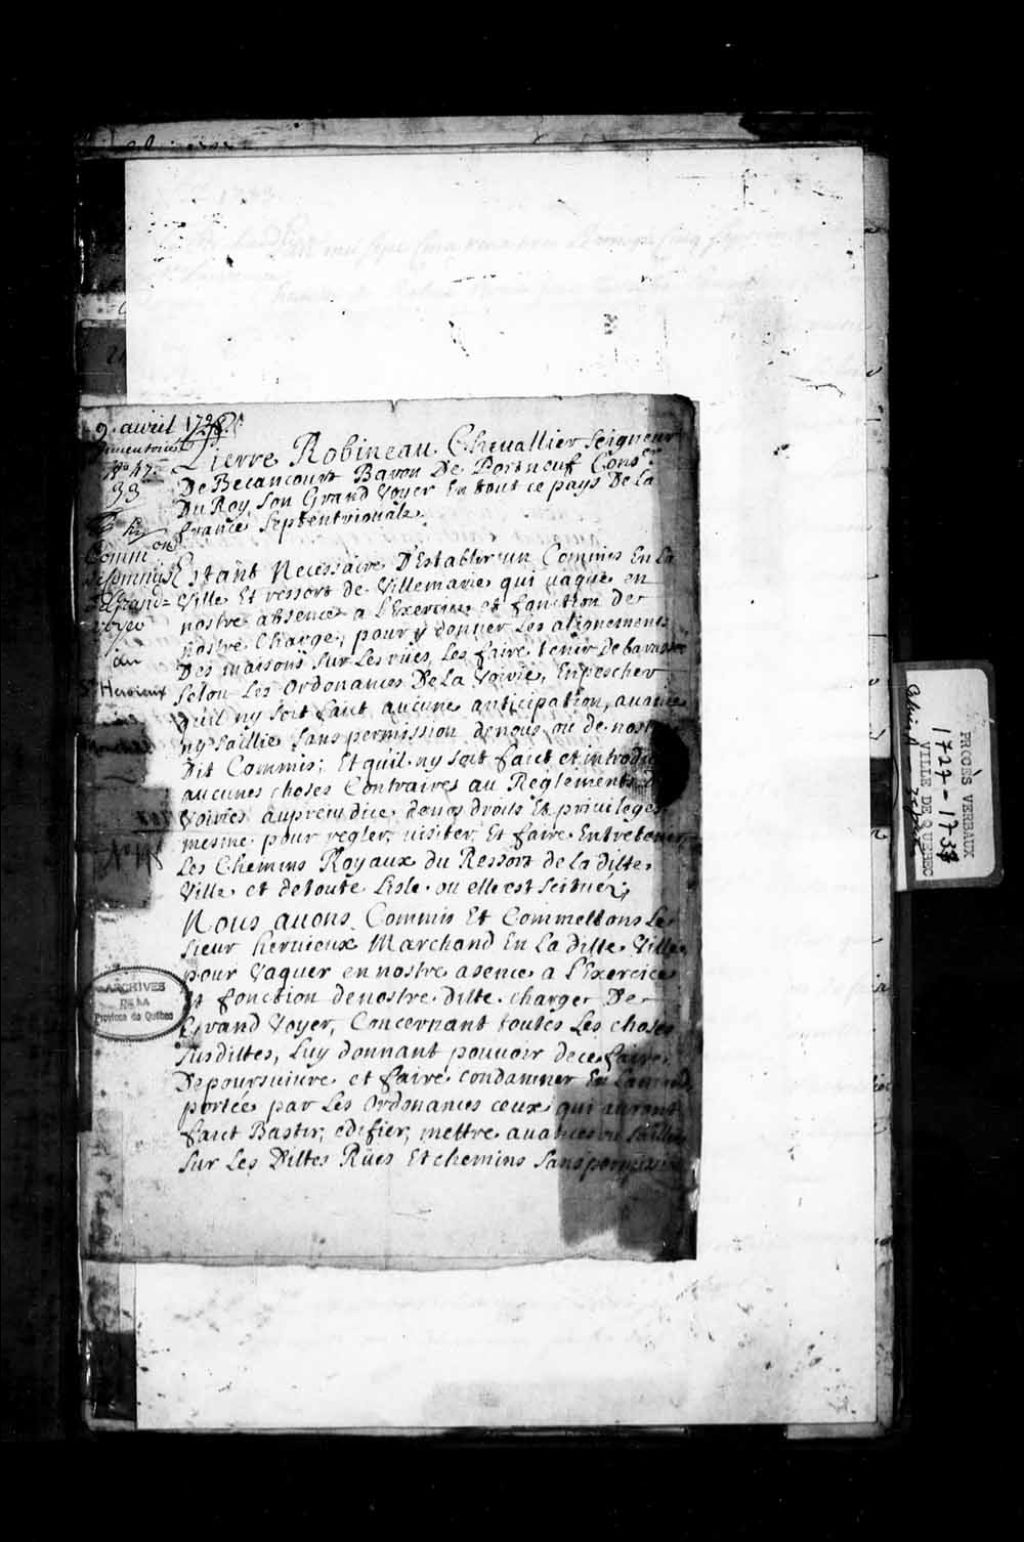 9. avril 1728
Pierre Robineau Chevallier Seigneur
De Becancourt Baron De Portneuf Cons.er
Du Roy, Son Grand Voyer En tout ce pays De La
france Septentrionale.
No 47.
33
Comm.on
Grand=
voyer
du
Sr Hervieux
Estant Necessaire D'Establir un Commis En La
Ville Et ressort de Villemarie qui vaque en
nostre absence a L'Exercice et fonction de
nostre Charge, pour y donner Les alignements
Des maisons Sur Les rües, Les faire tenir Debarassées
Selon Les Ordonances De La Voirie, Enpescher
quil ny Soit faict aucune anticipation, avance
ny Saillie Sans permission denous ou de nost
Dit Commis; Et quil ny Soit faict et introdu
aucunes choses Contraires au Reglements
Voiries aupreiudice denos droits Et privileges
mesme pour regler, visiter, Et faire Entretenir
Les Chemins Royaux du Ressort de La ditte
Ville et detoute Lisle ou elle est Scituée;
Nous avons Commis Et Commettons Le
Sieur hervieux Marchand En La ditte Ville
pour Vaquer en nostre asence a L'Exercice
Et fonction denostre ditte charge De
Grand Voyer, Concernant toutes Les choses
Susdittes, Luy donnant pouvoir dece faire
De poursuivre et faire condamner En Lamende
portée par Les Ordonances ceux qui auront
faict Bastir, edifier, mettre avances ou Saillies
Sur Les Dittes Rües Et chemins Sans permission
ARCHIVES
DE LA
Province de Québec
PROCÈS VERBAUX
1727-1738
VILLE DE QUEBEC